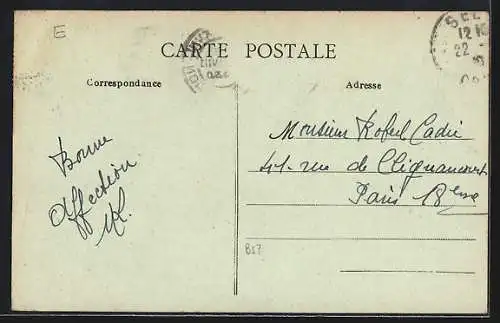 E
CARTE POSTALE
Correspondance
Adresse
Bonne
affection
Monsieur Robert Cadic
rue de Clignancourt
Paris 18eme
B57